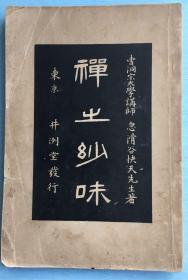 曹洞宗大學講師 忽滑谷快天先生著
禪之妙味
東京 井洌堂發行